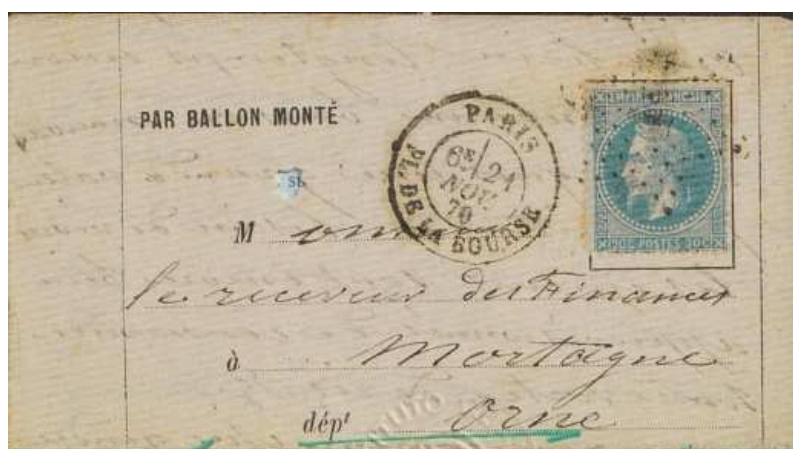 PAR BALLON MONTÉ
PARIS
6E/21
NOV.
70
PL. DE LA BOURSE
EMPIRE FRANCAIS
20C POSTES 20C
M
le receveur des Finances
à Mortagne
dépt Orne